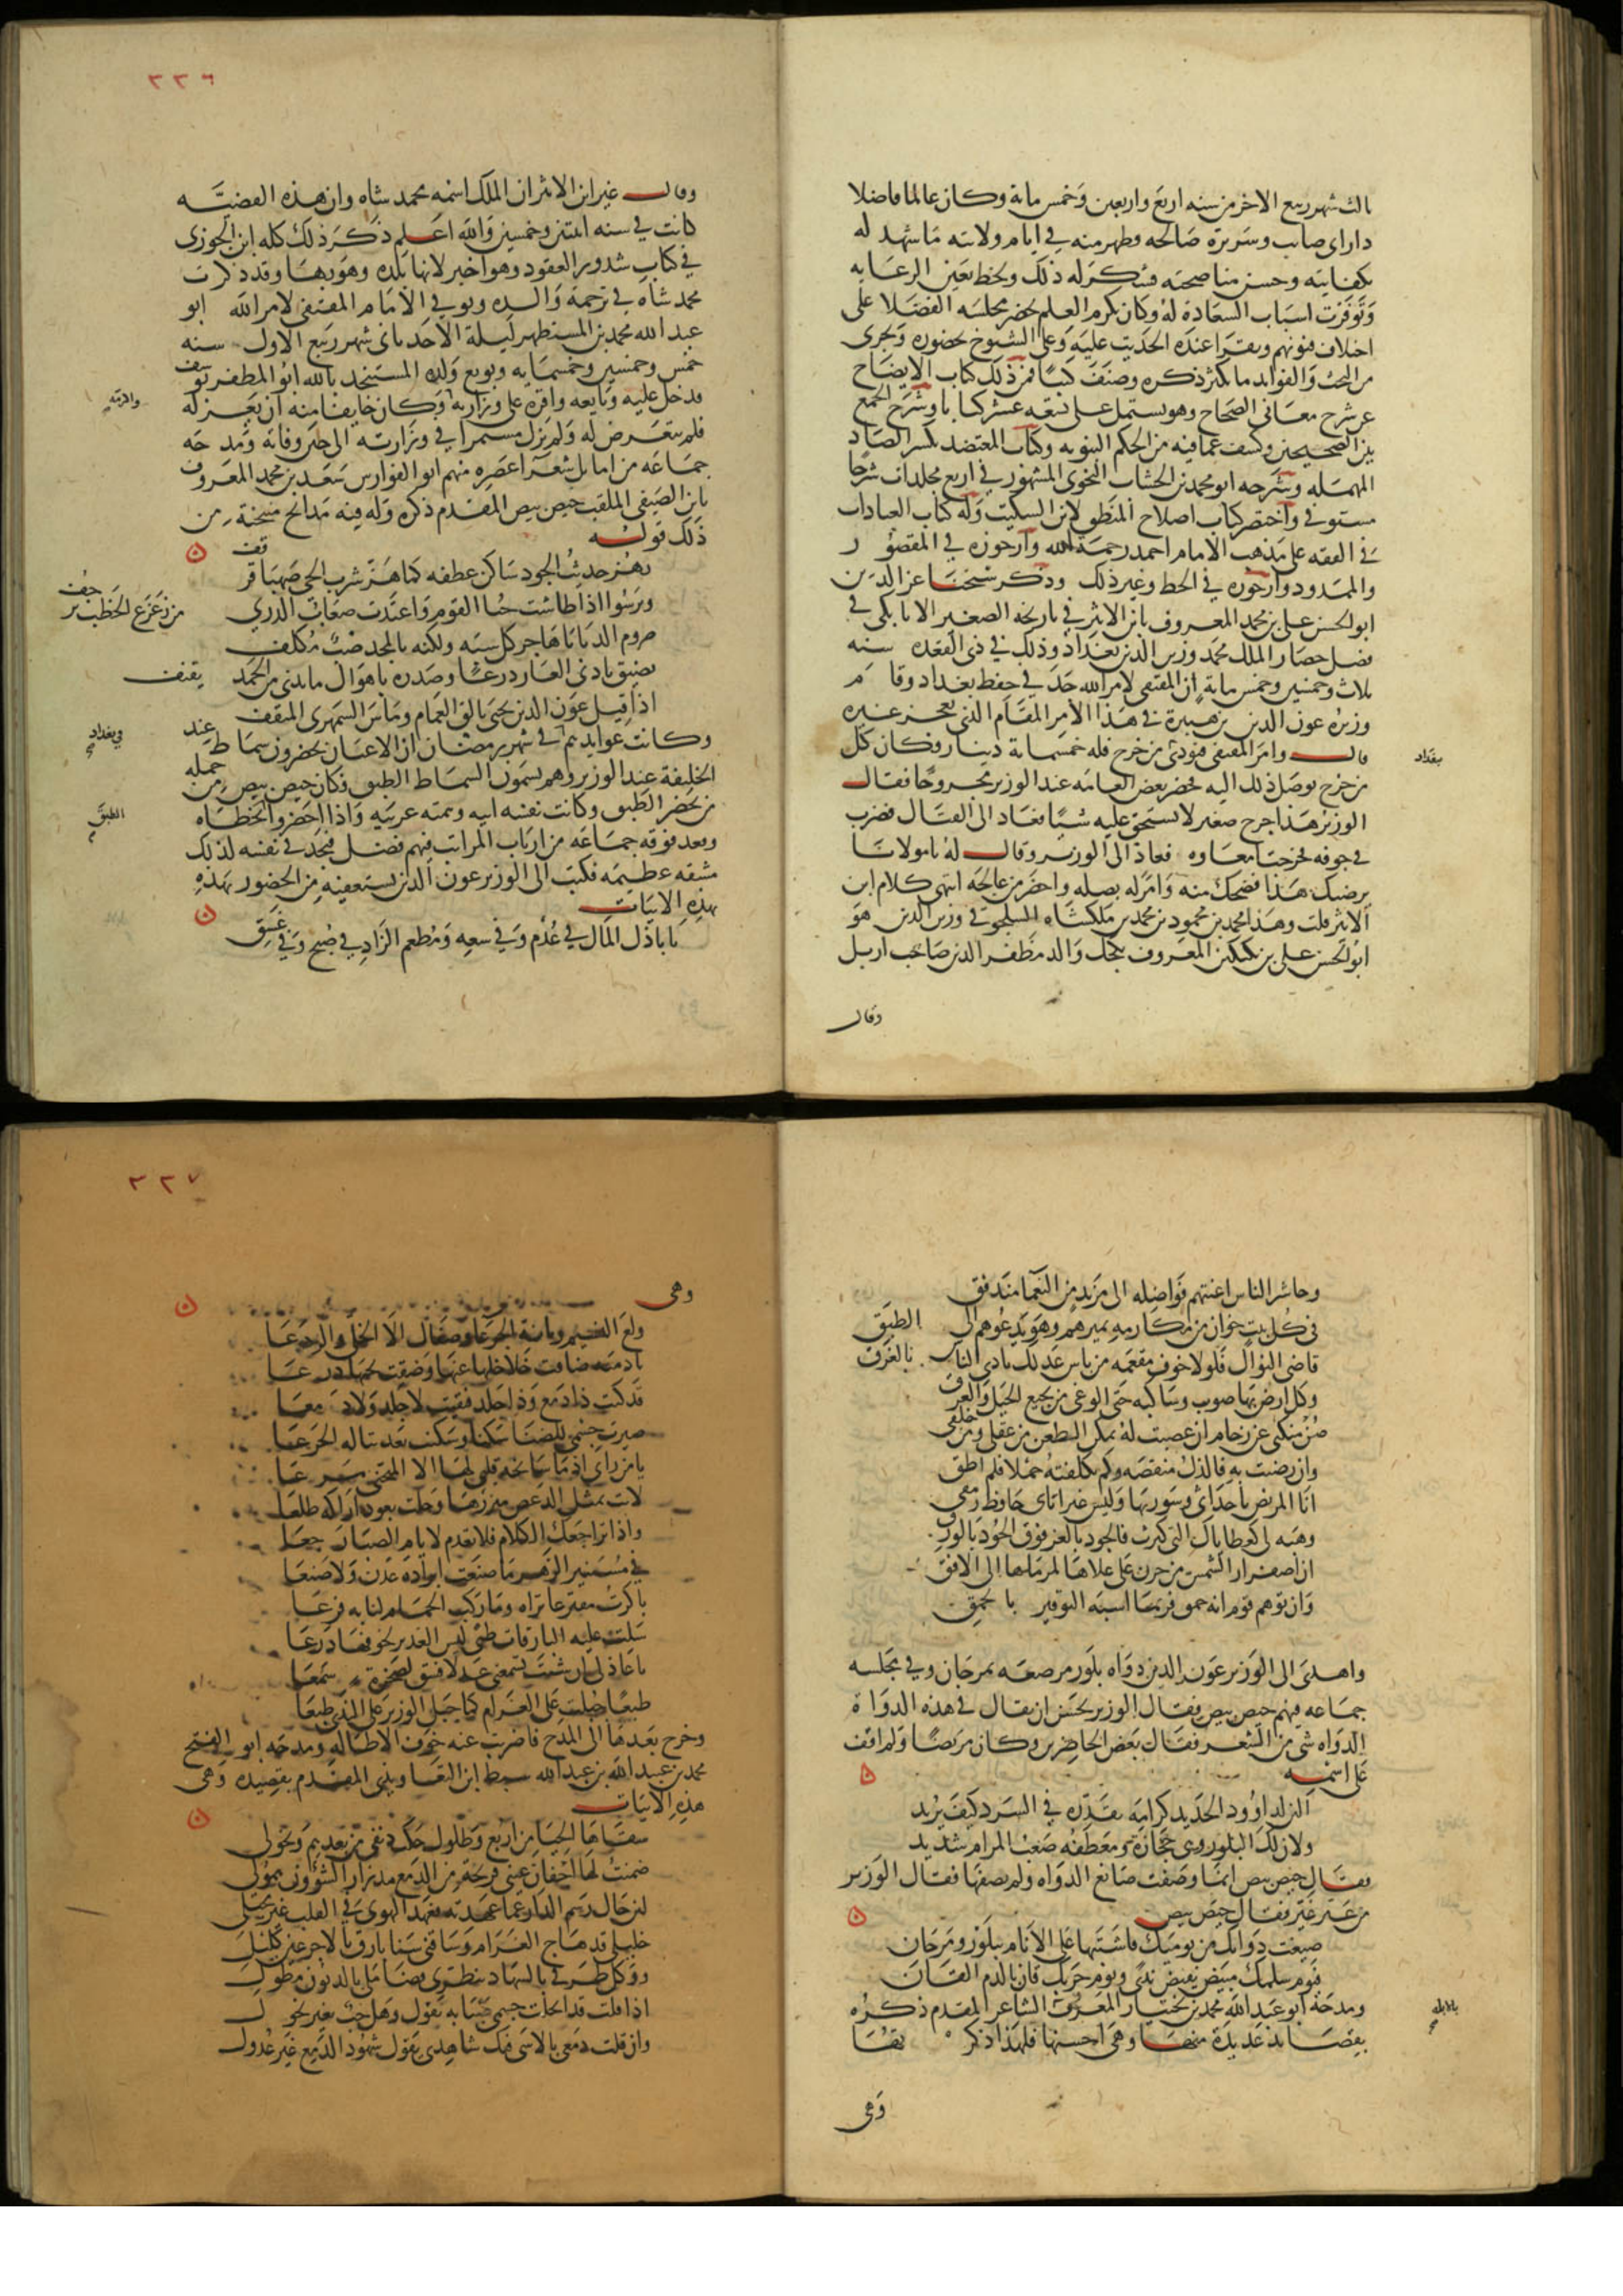 ثالث شهر ربيع الاخر من سنه اربع واربعين وخمس مايه وكان عالما فاضلا
داراى صايب وسريرة صالحه وظهر منه في ايام ولايته ما شهد له
بكفايته وحسن مناصحته فشكر له ذلك ولحظ بعين الرعايه
وتوفرت اسباب السعادة له وكان يكرم العلم يحضر مجلسه الفضلا على
اختلاف فنونهم ويقرا عنده الحديث عليه وعلى الشيوخ بحضوره ويجرى
من البحث والفوايد ما يكثر ذكره وصنف كتبا فمن ذلك كتاب الايضاح
عن شرح معانى الصحاح وهو يشتمل على تسعه عشر كتابا وشرح الجمع
بين الصحيحين وكشف عما فيه من الحكم النبويه وكتاب المعتضد بكسر الصاد
المهمله وشرحه ابو محمد بن الخشاب النحوى المشهور في اربع مجلدات شرحا
مستوفى واختصر كتاب اصلاح المنطق لابن السكيت وله كتاب العبادات
في الفقه على مذهب الامام احمد رحمه الله وارجوزه في المقصور
والممدود وارجوزه في الخط وغير ذلك وذكر شيخنا عز الدين
ابو الحسن على بن محمد المعروف بابن الاثير في تاريخه الصغير الاتابكى في
فصل حصار الملك محمد وزين الدين بغداد وذلك في ذى القعده سنه
ثلاث وخمسين وخمس مايه ان المقتفى لامر الله جد في حفظ بغداد وقام
وزيره عون الدين بن هبيرة في هذا الامر المقام الذى يعجز عنه غيره
قال وامر المقتفى فنودى من خرج فله خمسمايه دينار فكان كل
بغداد
من خرج يوصل ذلك اليه فحضر بعض العامه عند الوزير مجروحا فقال
الوزير هذا جرح صغير لا تستحق عليه شيئا فعاد الى القتال فضرب
في جوفه فخرجت امعاوه فعاد الى الوزير وقال له يا مولانا
يرضيك هذا فضحك منه وامر له بصله واحضر من عالجه انتهى كلام ابن
الاثير قلت وهذا محمد بن محمود بن محمد بن ملكشاه السلجوقى وزين الدين هو
ابو الحسن على بن بكتكين المعروف بكجك والد مظفر الدين صاحب اربل
وقال
٣٣٦
وقال غير ابن الاثير ان الملك اسمه محمد شاه وان هذه القضيه
كانت في سنه اثنتين وخمسين والله اعلم ذكر ذلك كله ابن الجوزى
في كتاب شذور العقود وهو اخبر لانها بلده وهو بها وقد ذكرت
محمد شاه في ترجمة والده وتوفي الامام المقتفى لامر الله ابو
عبد الله محمد بن المستظهر ليلة الاحد ثانى شهر ربيع الاول سنه
خمس وخمسين وخمسمايه وبويع ولده المستنجد بالله ابو المظفر يوسف
فدخل عليه وبايعه واقره على وزارته وكان خايفا منه ان يعزله
واقرته
فلم يتعرض له ولم يزل مستمرا في وزارته الى حين وفاته ومدحه
جماعه من اماثل شعرا عصره منهم ابو الفوارس سعد بن محمد المعروف
بابن الصيفى الملقب حيص بيص المقدم ذكره وله فيه مدائح منتخبة من
ذلك قوله
يهز حديث الجود ساكن عطفه كما هز شرب الحى صهباء قرقف
ويرسوا اذا طاشت حبا القوم واغتدت صعاب الذرى من زعزع الخطب ترجف
صروم الدنايا هاجر كل سبه ولكنه بالمجد صب مكلف
يضيق بادنى العار ذرعا وصدره باهوال ما يدنى من الحمد يقذف
اذا قيل عون الدين يحيى تالق الغمام وماس السمهرى المثقف
وكانت عوايدهم في شهر رمضان ان الاعيان يحضرون سماط عند
في بغداد
الخليفة عند الوزير وهم يسمون السماط الطبق وكان حيص بيص من جمله
من يحضر الطبق وكانت نفسه ابيه وهمته عربيه واذا احضروا تخطاه
الطبق
وقعد فوقه جماعه من ارباب المراتب فيهم فضل فيجد في نفسه لذلك
مشقه عظيمه فكتب الى الوزير عون الدين يستعفيه من الحضور بهذه
بهذه الابيات
يا باذل المال في عدم وفي سعه ومطعم الزاد في صبح وفي غسق
وحاشر الناس اغنتهم فواضله الى مزيد من النعما مندفق
في كل بيت خوان من مكارمه يميرهم وهو يدعوهم الى الطبق
فاض النوال فلولا خوف مفعمه من باس عدلك نادى الناس بالغرق
وكل ارض بها صوب وساكبه حتى الوغى من نجيع الخيل والعرق
صن منكبى عن زحام ان غضبت له تمكن الطعن من عقلى ومن خلقى
وان رضيت به فالذل منقصه وكم تكلفته حملا فلم اطق
انا المريض باحداثى وسورتها وليس غير ابائى حافظ رمقى
وهبه لى كعطاياك التى كثرت فالجود بالعز فوق الجود بالورق
ان اصفرار الشمس من حزن على علاها لمرماها الى الافق
وان توهم قوم انه حمق فربما اشتبه التوقير بالحمق
واهدى الى الوزير عون الدين دواه بلور مرصعه بمرجان وفي مجلسه
جماعه فيهم حيص بيص فقال الوزير يحسن ان يقال في هذه الدواة
الدواه شى من الشعر فقال بعض الحاضرين وكان مريضا ولم اقف
على اسمه
الين لداوود الحديد كرامه يقدره في السرد كيف يريد
ولان لك البلور وهى حجارة ومعطفه صعب المرام شديد
فقال حيص بيص انما وصفت صانع الدواه ولم تصفها فقال الوزير
من عير غير فقال حيص بيص
صيغت دواتك من يوميك فاشتبها على الانام ببلور ومرجان
فيوم سلمك مبيض يفيض ندى ويوم حربك قان بالدم القان
ومدحه ابو عبد الله محمد بن بختيار المعروف الشاعر المقدم ذكره
بالابله
بقصايد عديدة منها وهى احسنها فلهذا ذكرتها
وهى
٣٣٧
وهى
ولع النسيم وبانة الجرعا وصفان الا الخلى والردعا
يا دمية ضاقت خلاخلها عنها وضقت بحبها درعا
قد كنت ذا دمع وذا جلد فبقيت لا جلد ولا دمعا
صيرت جسمى للضنا سكنا وسكنت بعد تباله الجرعا
لاث بمثل الدعص ميزرها وجلت بعود اراكه طلعا
واذا تراجعك الكلام فلا تعدم لايام الصبا رجعا
باكرت مفترعا تراه وما ركب الحمام لنابه فرعا
سلت عليه البارقات ظبى لبس الغدير لخوفها درعا
يا عاذلى ان شئت تسمعنى عذلا فشق لصخرة سمعا
طبعا جبلت على الغرام كما جبل الوزير على الندى طبعا
وخرج بعدها الى المدح فاضربت عنه خوف الاطاله ومدحه ابو الفتح
محمد بن عبيد الله بن عبد الله سبط ابن التعاويذى المقدم بقصيده وهى
هذه الابيات
سقاها الحيا من اربع وطلول حكت دنفى من بعدهم ونحولى
ضمنت لها اجفان عين قريحة من الدمع مدرار الشؤون همول
لئن حال رسم الدار عما عهدته فعهد الهوى في القلب غير محيل
خليلى قد هاج الغرام وشاقنى سنا بارق بالاجرعين كليل
ووكل طرفى بالسهاد تنظرى قضا ملى بالديون مطول
اذا قلت قد انحلت جسمى صبابه تقول وهل حب بغير نحول
وان قلت دمعى بالاسى فيك شاهدى تقول شهود الدمع غير عدول